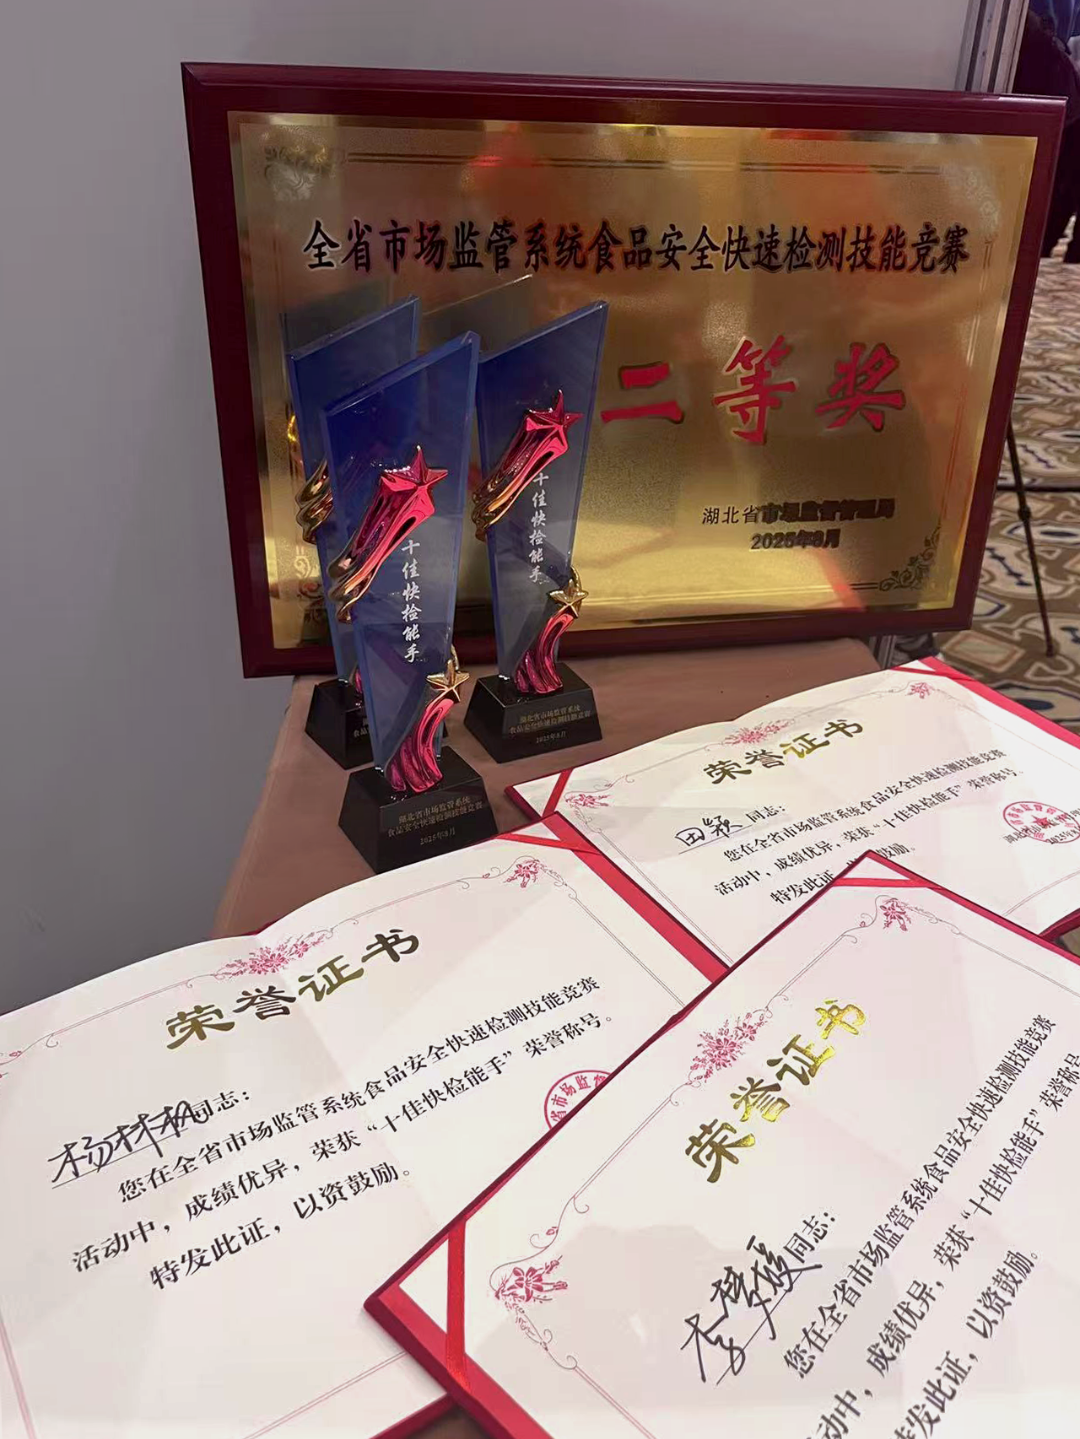 全省市场监管系统食品安全快速检测技能竞赛
二等奖
湖北省市场监督管理局
2025年8月
十佳快检能手
十佳快检能手
湖北省市场监管系统
食品安全快速检测技能竞赛
2025年8月
湖北省市场监管系统
食品安全快速检测技能竞赛
2025年8月
荣誉证书
田颖 同志：
您在全省市场监管系统食品安全快速检测技能竞赛
活动中，成绩优异，荣获“十佳快检能手”荣誉称号。
特发此证，以资鼓励。
荣誉证书
杨林枫同志：
您在全省市场监管系统食品安全快速检测技能竞赛
活动中，成绩优异，荣获“十佳快检能手”荣誉称号。
特发此证，以资鼓励。
省市场监
荣誉证书
李梦媛同志：
您在全省市场监管系统食品安全快速检测技能竞赛
活动中，成绩优异，荣获“十佳快检能手”荣誉称号
特发此证，以资鼓励。